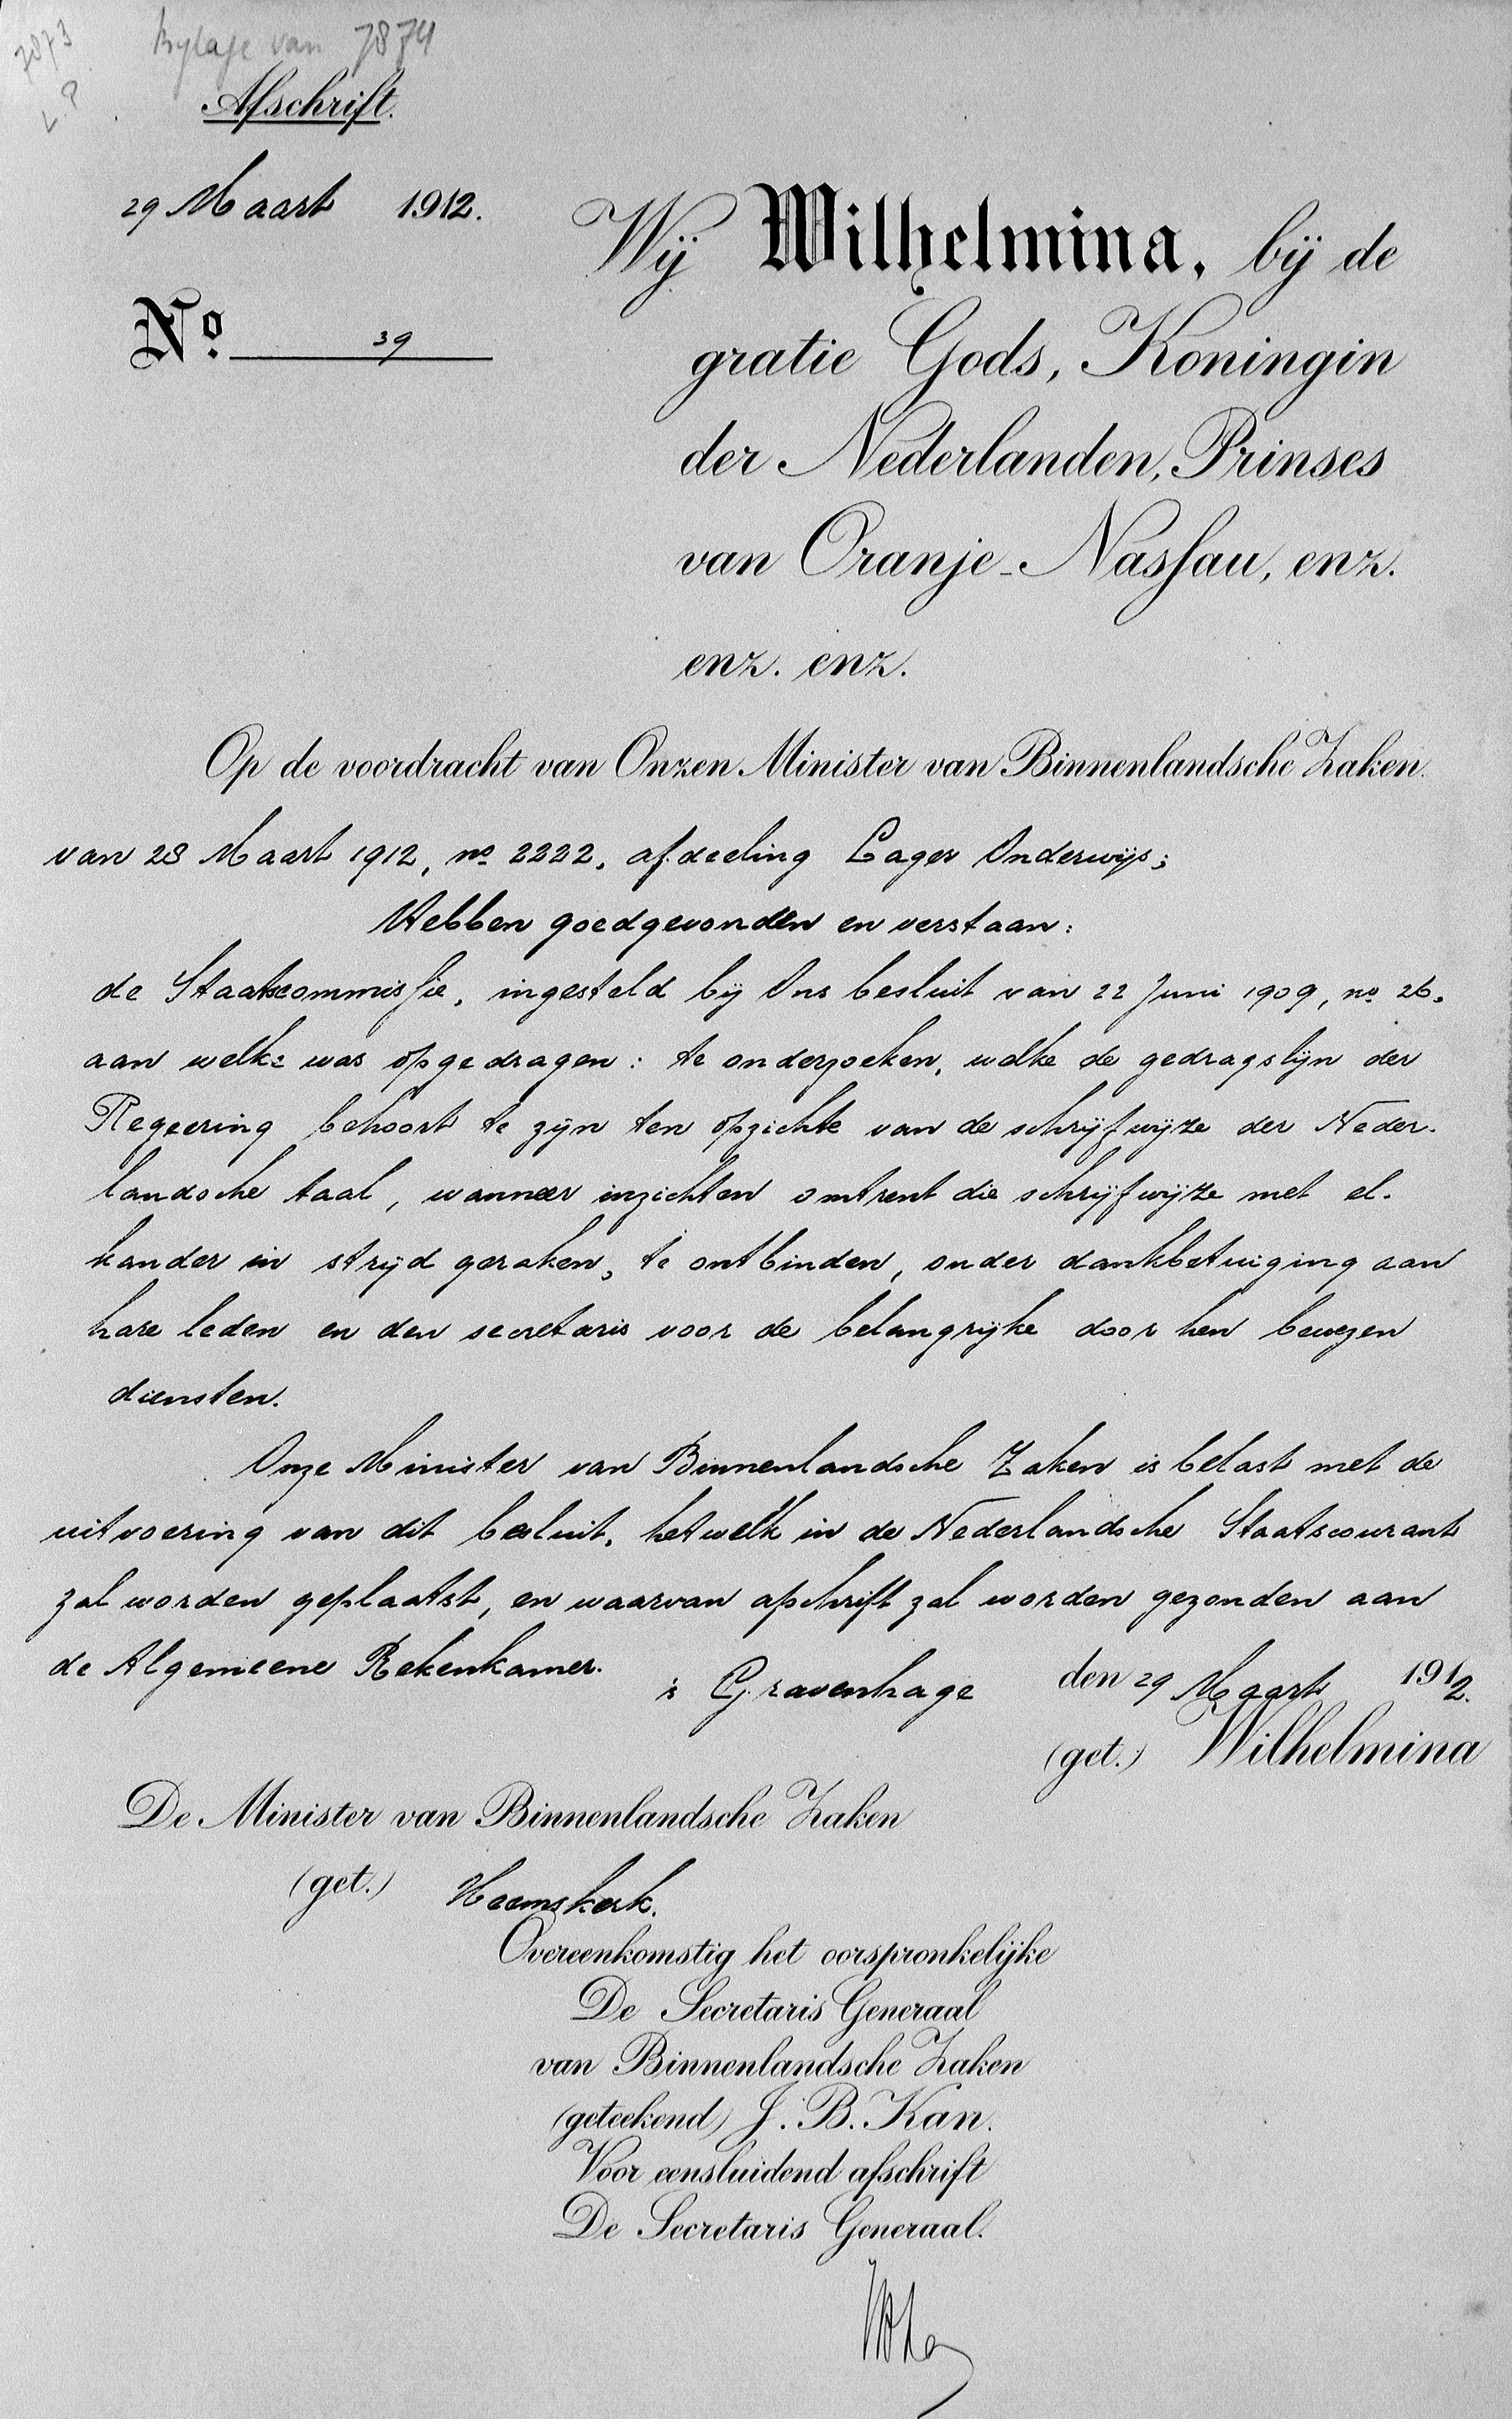 7873
bylage van 7874
L.O
Afschrift.
29 Maart 1912.
No. 39
Wij Wilhelmina, bij de
gratie Gods, Koningin
der Nederlanden, Prinses
van Oranje-Nassau, enz.
enz. enz.
Op de voordracht van Onzen Minister van Binnenlandsche Zaken
van 28 Maart 1912, no 2222, afdeeling Lager Onderwijs;
Hebben goedgevonden en verstaan:
de Staatscommissie, ingesteld bij Ons besluit van 22 Juni 1909, no 26,
aan welke was opgedragen: te onderzoeken, welke de gedragslijn der
Regeering behoort te zijn ten opzichte van de schrijfwijze der Neder-
landsche taal, wanneer inzichten omtrent die schrijfwijze met el-
kander in strijd geraken, te ontbinden, onder dankbetuiging aan
hare leden en den secretaris voor de belangrijke door hen bewezen
diensten.
Onze Minister van Binnenlandsche Zaken is belast met de
uitvoering van dit besluit, hetwelk in de Nederlandsche Staatscourant
zal worden geplaatst, en waarvan afschrift zal worden gezonden aan
de Algemeene Rekenkamer.
's Gravenhage den 29 Maart 1912.
(get.) Wilhelmina
De Minister van Binnenlandsche Zaken
(get.) Heemskerk.
Overeenkomstig het oorspronkelijke
De Secretaris Generaal
van Binnenlandsche Zaken
(geteekend) J. B. Kan.
Voor eensluidend afschrift
De Secretaris Generaal.